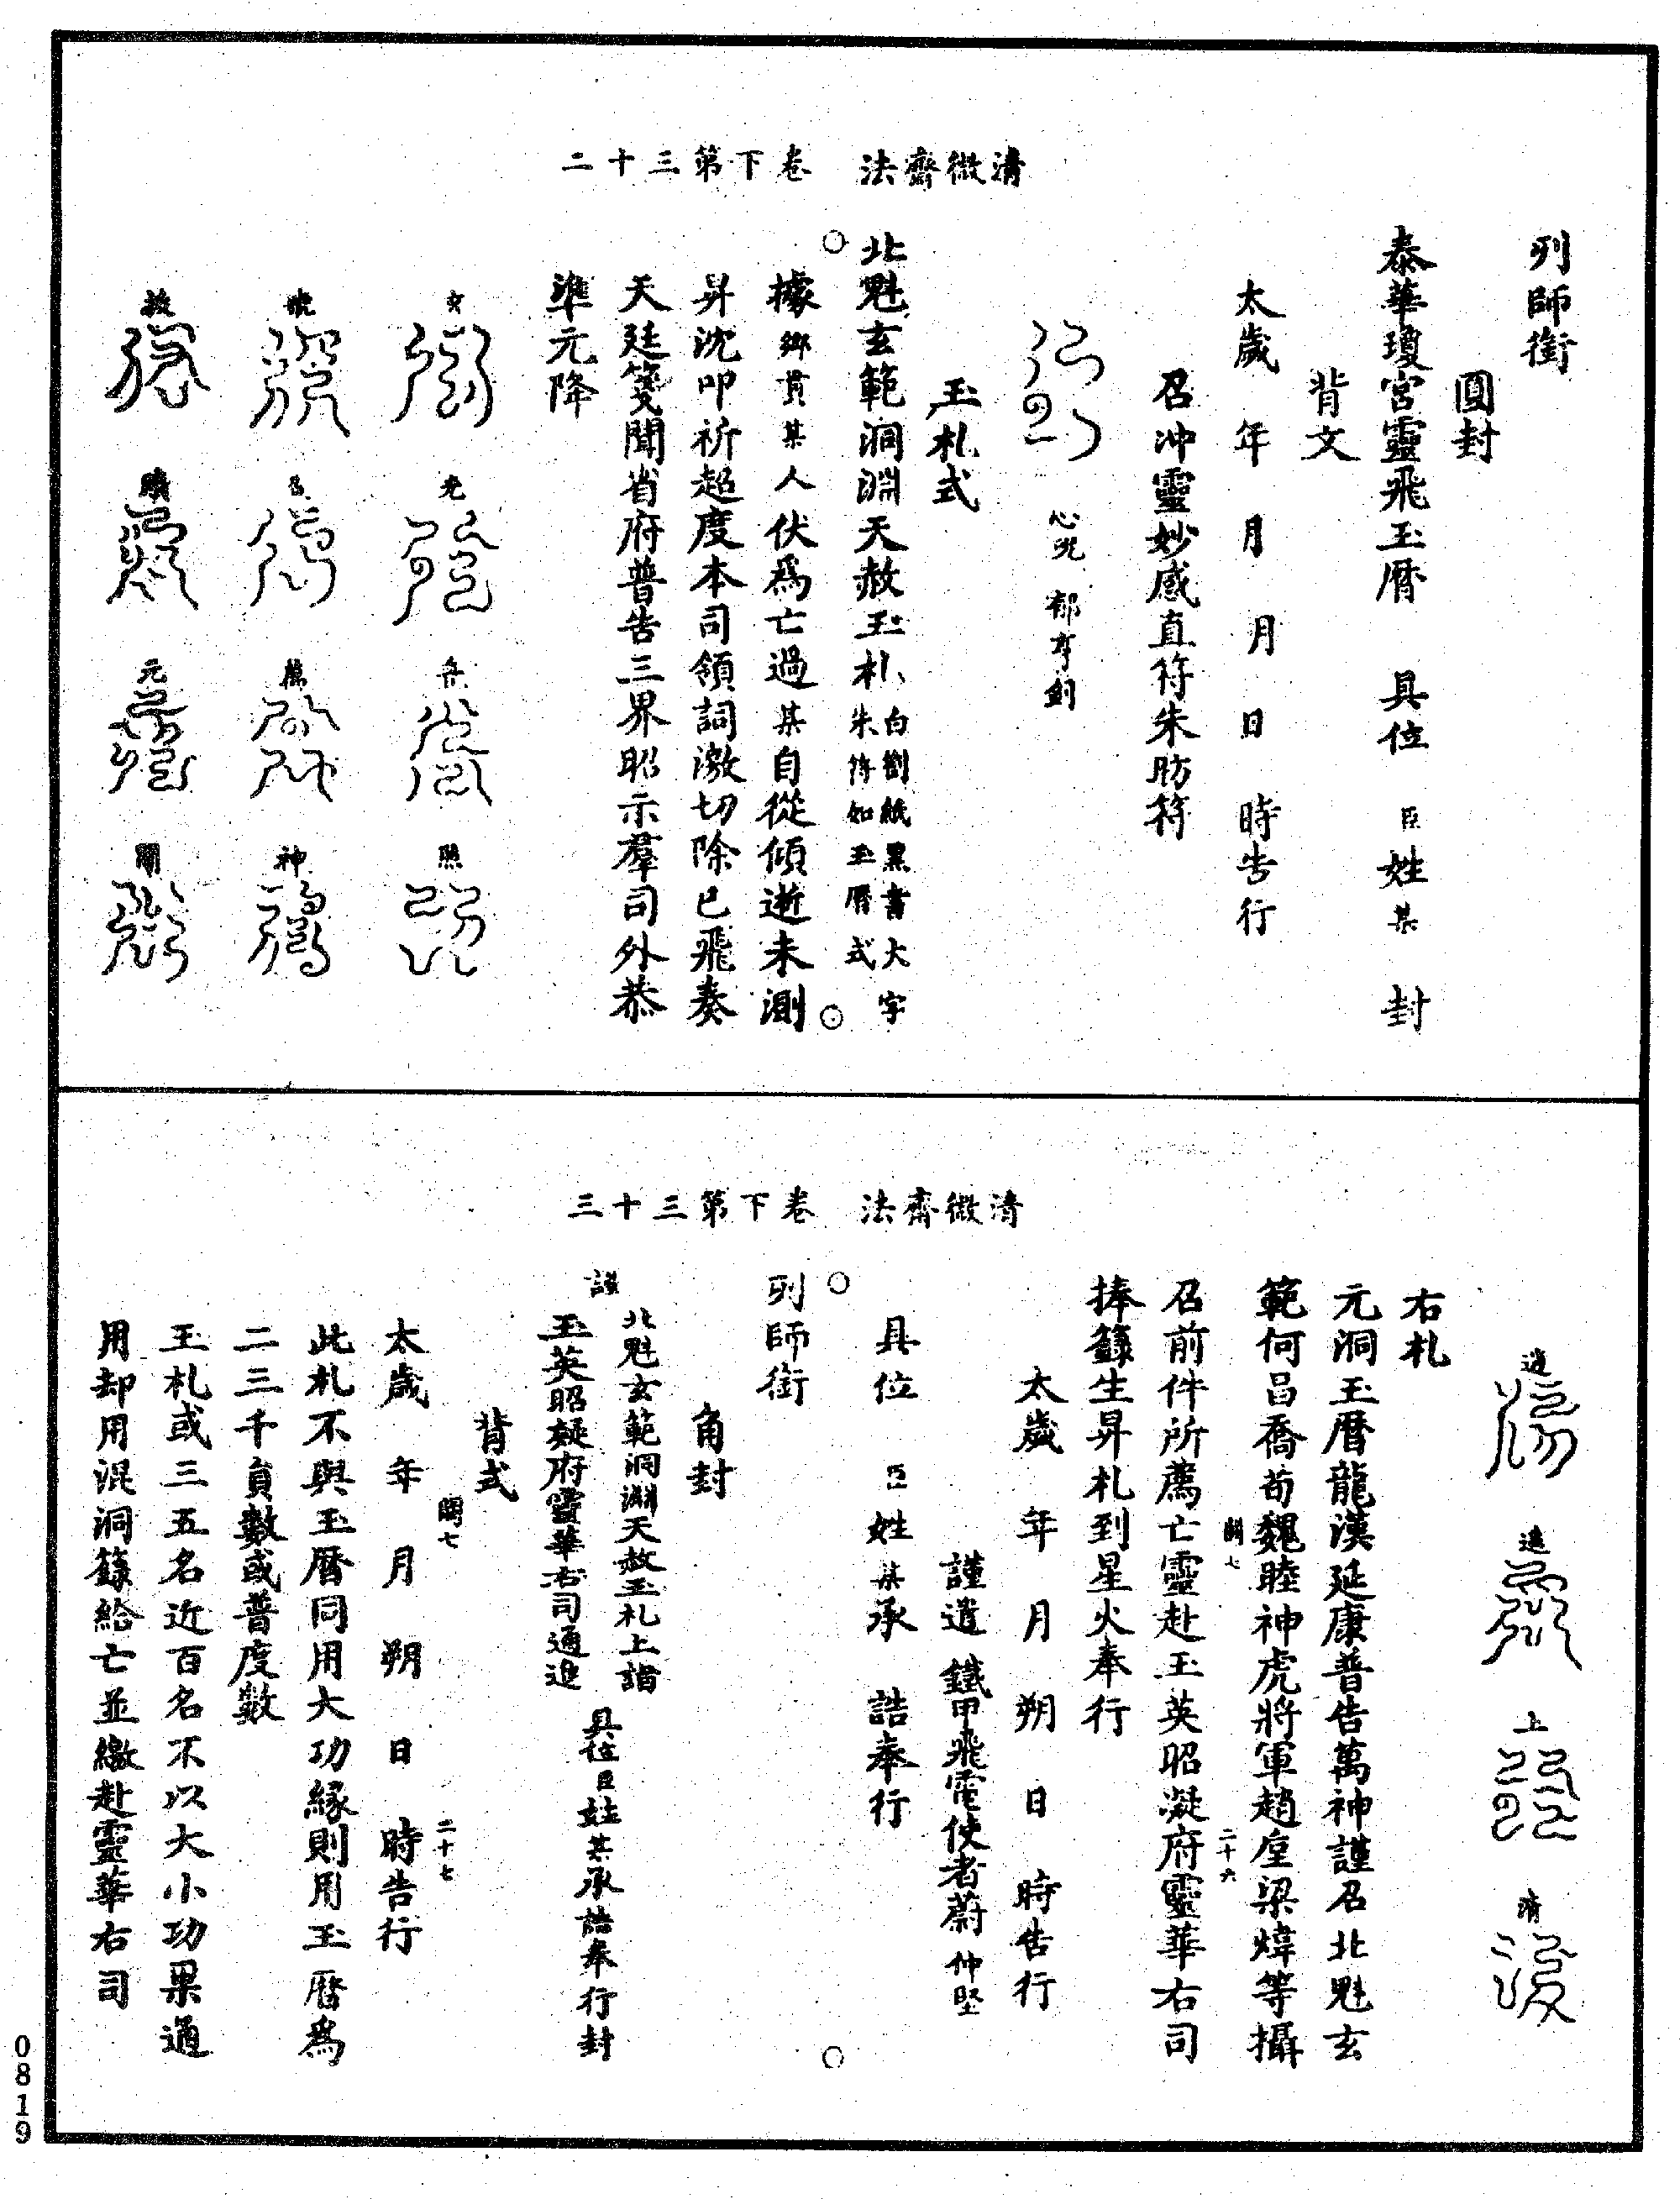 清微齋法　卷下第三十二
列師銜
圓封
泰華瓊宮靈飛玉曆　具位　臣姓某　封
背文
太歲　年　月　月　日　時告行
召沖靈妙感直符朱昉符
心咒　郁亨劍
玉札式
北魁玄範洞淵天赦玉札
白劄紙黑書大字
朱符如玉曆式
據鄉貫某人伏爲亡過某自從傾逝未測
昇沈叩祈超度本司領詞激切除已飛奏
天廷箋聞省府普告三界昭示羣司外恭
準元降
光岳照
召神
元開
清微齋法　卷下第三十三
上清
右札
元洞玉曆龍漢延康普告萬神謹召北魁玄
範何昌喬荀魏睦神虎將軍趙垕梁煒等攝
召前件所薦亡靈赴玉英昭凝府靈華右司
二十六
捧籙生昇札到星火奉行
太歲　年　月　朔　日　時告行
謹遣鐵甲飛電使者蔚仲堅
具位　臣姓某承　誥奉行
列師銜
角封
謹
北魁玄範洞淵天赦玉札上詣
玉英昭凝府靈華右司通進
具位臣姓某承誥奉行封
背式
二十七
太歲　年　月　朔　日　時告行
此札不與玉曆同用大功緣則用玉曆爲
二三千員數或普度數
玉札或三五名近百名不以大小功果通
用却用混洞籙給亡並繳赴靈華右司
0819